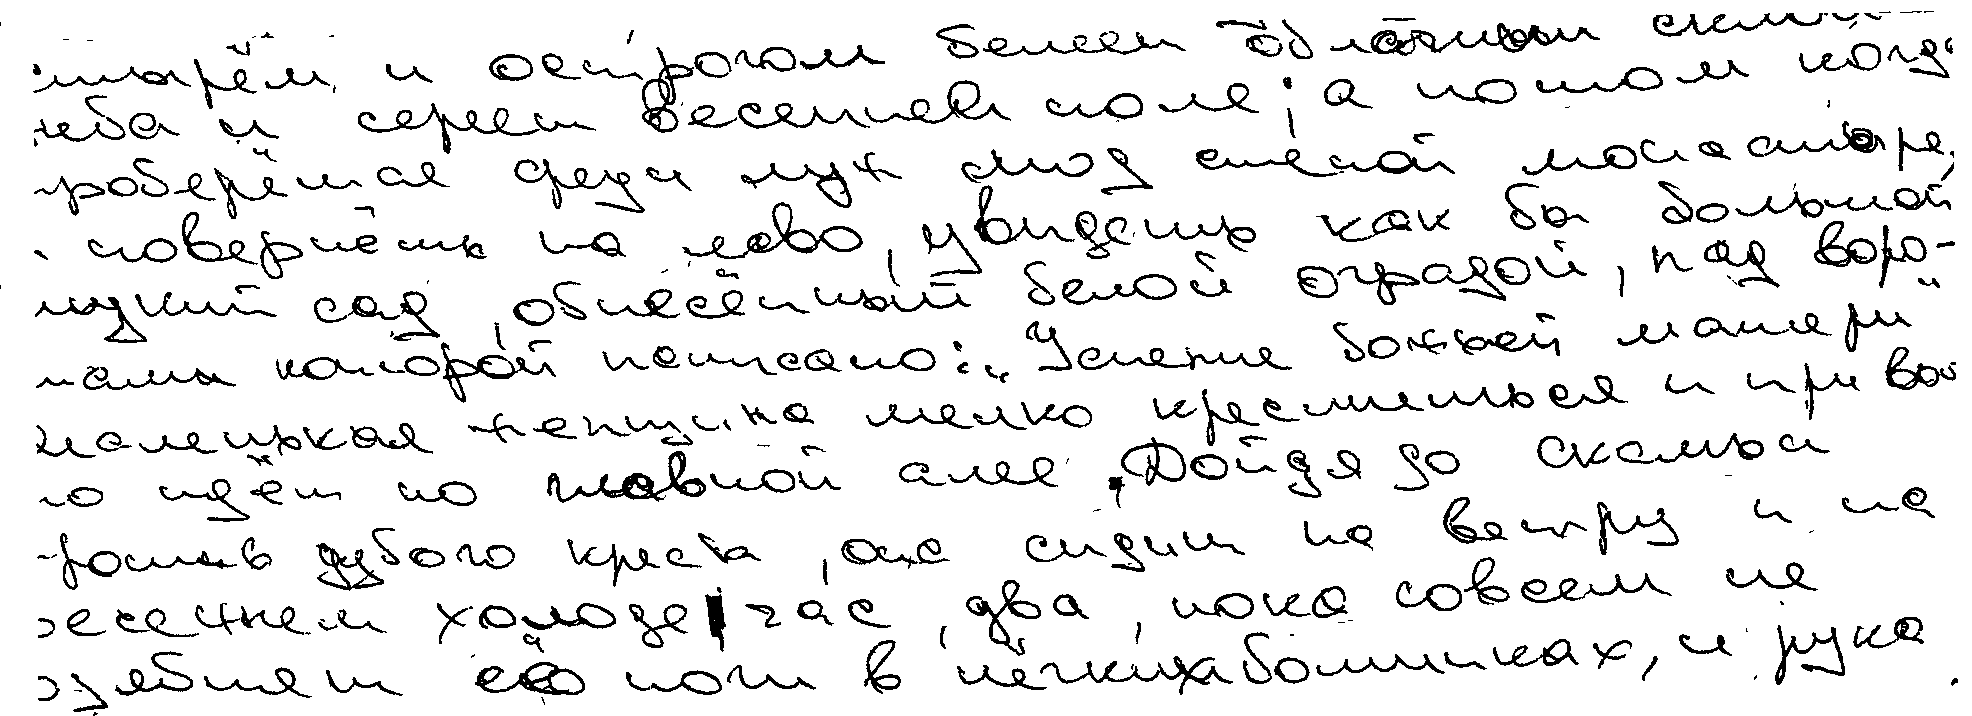 стырём и острогом белеет облачный скло
неба и сереет весеннея поле; а потом когда
проберёшся среди луж под стеной монастыря,
и повернёшь на лево, увидешь как бы большой
низкий сад, обнесённый белой оградой, над воро-
тами которой написано: „Успение божьей матери"
маленькая женщина мелко креститься и привы
но идёт по главной алее. Дойдя до скамьи
против дубого креста, она сидит на ветру и на
весеннем холоде час, два, пока совсем не
озябнят её ноги в лёгких ботинках, и рука